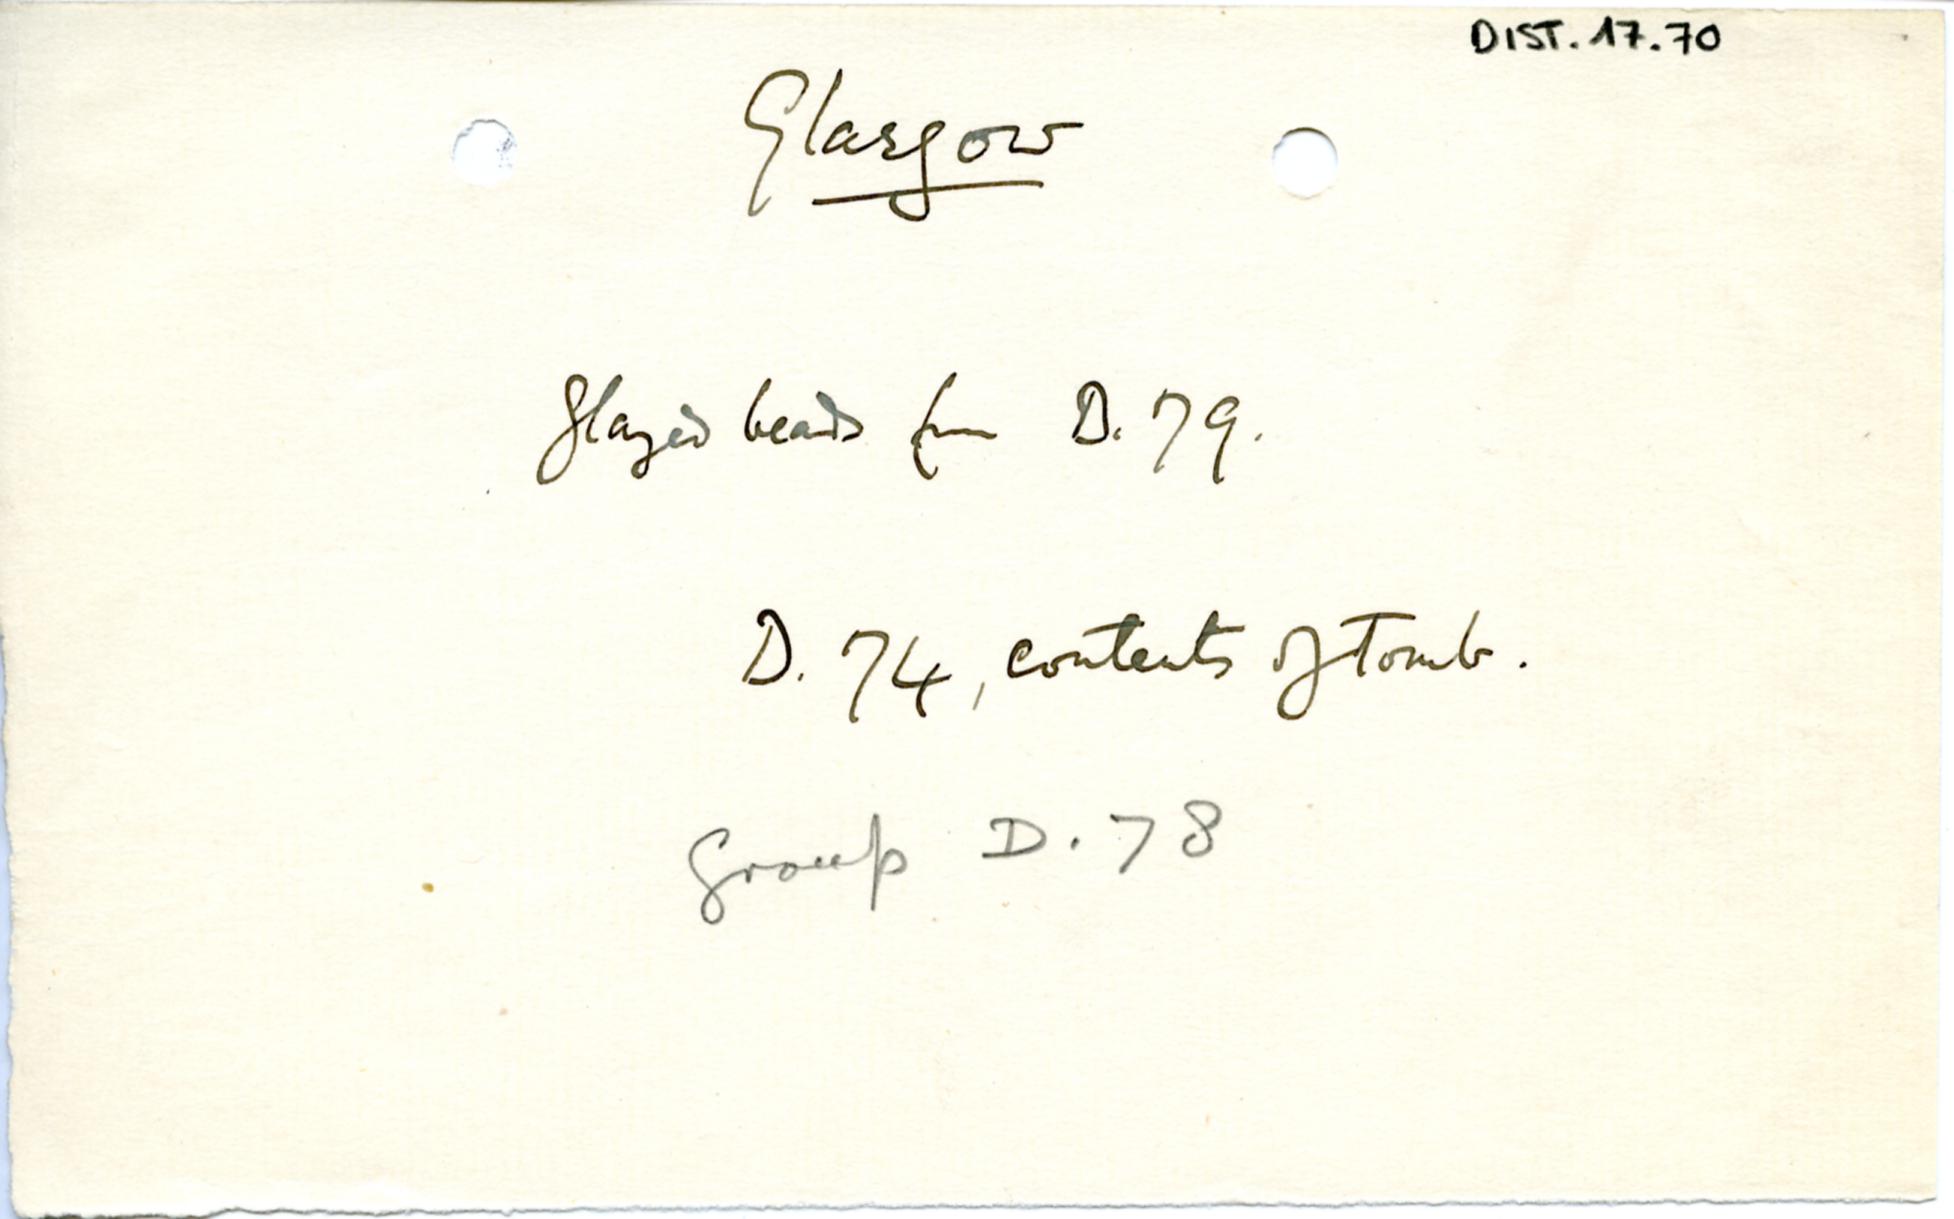 DIST. 17.70
Glasgow
Glazed beads from D. 79.
D. 74, contents of Tomb.
Group D. 78